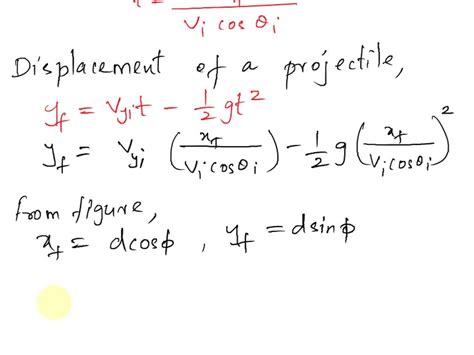 v_i cos θ_i
Displacement of a projectile,
y_f = v_yi t - 1/2 gt^2
y_f = v_yi (x_f / v_i cos θ_i) - 1/2 g (x_f / v_i cos θ_i)^2
from figure,
x_f = d cos ϕ , y_f = d sin ϕ